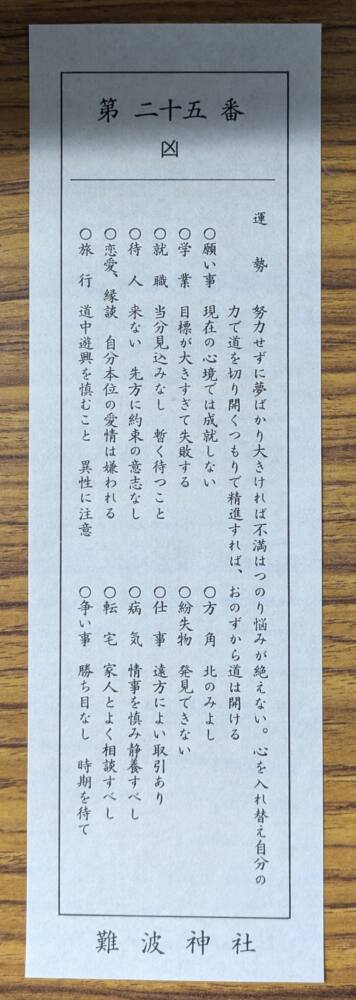 第 二十五 番
凶
運勢 努力せずに夢ばかり大きければ不満はつのり悩みが絶えない。心を入れ替え自分の
力で道を切り開くつもりで精進すれば、おのずから道は開ける
○願い事 現在の心境では成就しない
○学業 目標が大きすぎて失敗する
○就職 当分見込みなし 暫く待つこと
○待人 来ない 先方に約束の意志なし
○恋愛、縁談 自分本位の愛情は嫌われる
○旅行 道中遊興を慎むこと 異性に注意
○方角 北のみよし
○紛失物 発見できない
○仕事 遠方によい取引あり
○病気 情事を慎み静養すべし
○転宅 家人とよく相談すべし
○争い事 勝ち目なし 時期を待て
難波神社